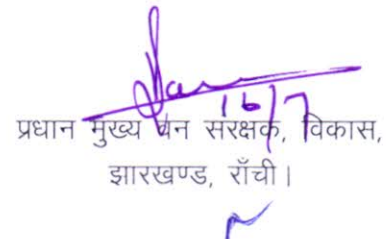 16/7
प्रधान मुख्य वन संरक्षक, विकास,
झारखण्ड, राँची।